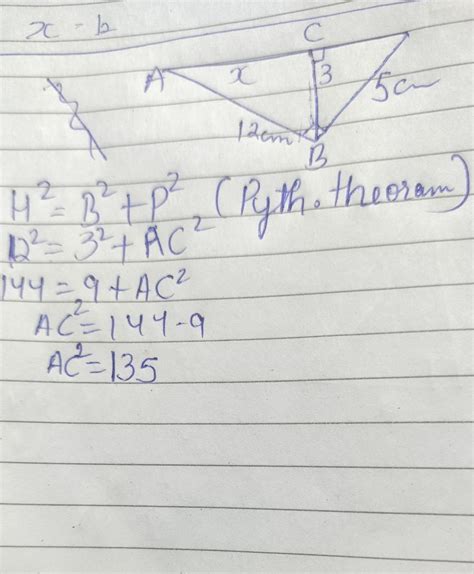 x - b
C
A
x
3
5cm
12cm
B
H² = B² + P² (Pyth. theoram)
12² = 3² + AC²
144 = 9 + AC²
AC² = 144 - 9
AC² = 135